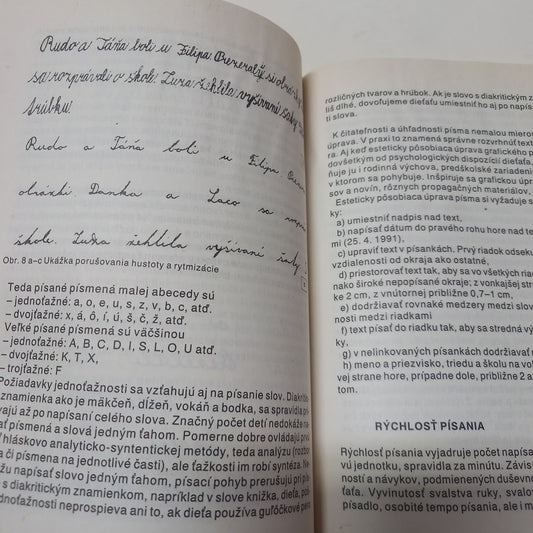 Rudo a Táňa boli u Filipa Prezerali si obrázky
sa rozprávali o škole. Zuza žehlila vyšívané šaty
trúbku.
Rudo a Táňa boli u Filipa
obrázki. Danka a Laco sa
škole. Zuzka žehlila vyšívané šaty.
Obr. 8 a–c Ukážka porušovania hustoty a rytmizácie
Teda písané písmená malej abecedy sú
– jednoťažné: a, o, e, u, s, z, v, b, c, atď.
– dvojťažné: x, á, ó, í, ú, š, č, ž, atď.
Veľké písané písmená sú väčšinou
– jednoťažné: A, B, C, D, I, S, L, O, U atď.
– dvojťažné: K, T, X,
– trojťažné: F
Požiadavky jednoťažnosti sa vzťahujú aj na písanie slov. Diakritické
znamienka ako je mäkčeň, dĺžeň, vokáň a bodka, sa spravidla
vajú až po napísaní celého slova. Značný počet detí nedokáže
písmená a slová jedným ťahom. Pomerne dobre ovládajú prvú
hláskovo analyticko-syntentickej metódy, teda analýzu (rozbor
a či písmen na jednotlivé časti), ale ťažkosti im robí syntéza.
napísať slovo jedným ťahom, písací pohyb prerušujú pri
s diakritickým znamienkom, napríklad v slove knižka, dieťa,
noťažnosti neprospieva ani to, ak dieťa používa guľôčkové pero
rozličných tvarov a hrúbok. Ak je slovo s diakritickým
liš dlhé, dovoľujeme dieťaťu umiestniť ho aj po napísaní
ti slova.
K čitateľnosti a úhľadnosti písma nemalou mierou
úprava. V praxi to znamená správne rozvrhnúť text
Aj keď esteticky pôsobiaca úprava grafického
dovšetkým od psychologických dispozícií dieťaťa,
ňuje ju i rodinná výchova, predškolské zariadenie
v ktorom sa pohybuje. Inšpiruje sa grafickou úpravou
sov a novín, rôznych propagačných materiálov,
Esteticky pôsobiaca úprava písma si vyžaduje
ky:
a) umiestniť nadpis nad text,
b) napísať dátum do pravého rohu hore nad text
(25. 4. 1991),
c) upraviť text v písankách. Prvý riadok odsekov
vzdialenosti od okraja ako ostatné,
d) priestorovať text tak, aby sa vo všetkých riadkoch
nako široké nepopísané okraje; z vonkajšej strany
ke 2 cm, z vnútornej približne 0,7–1 cm,
e) dodržiavať rovnaké medzery medzi slovami
nosti medzi riadkami
f) text písať do riadku tak, aby sa stredná výška
by,
g) v nelinkovaných písankách dodržiavať
h) meno a priezvisko, triedu a školu na
vej strane hore, prípadne dole, približne 2
hu.
RÝCHLOSŤ PÍSANIA
Rýchlosť písania vyjadruje počet napísaných
vú jednotku, spravidla za minútu. Závisí
ností a návykov, podmienených duševnou
ťaťa. Vyvinutosť svalstva ruky, svalová
písadlo, osobité tempo písania, ale aj